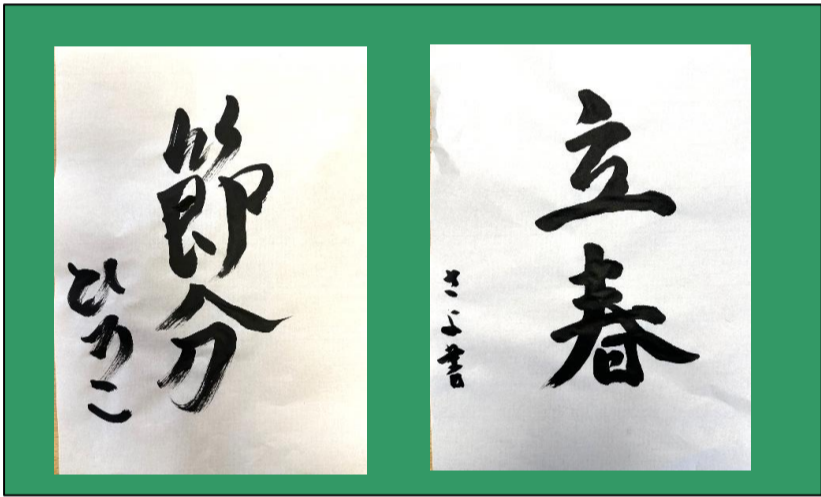 節分
ひろこ
立春
さよ書